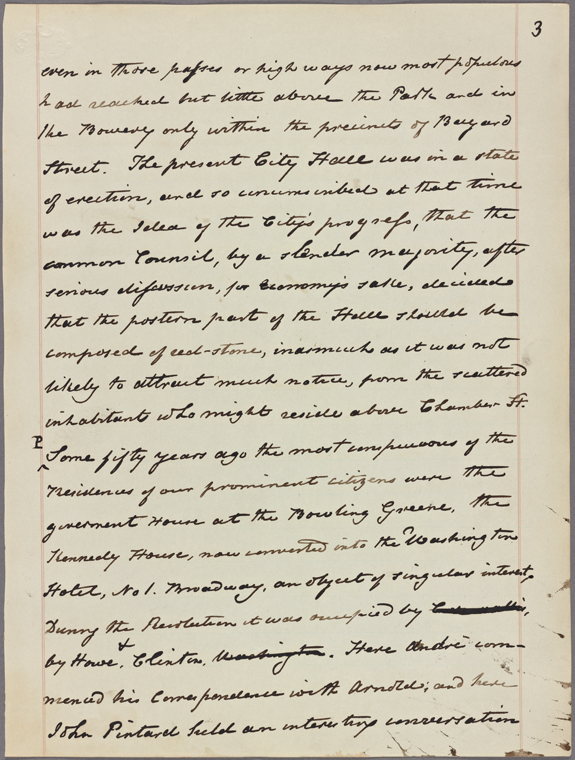 3
even in those passes or high ways now most populous
had reached but little above the Park and in
the Bowery only within the precincts of Bayard
Street. The present City Hall was in a state
of erection, and so circumscribed at that time
was the Idea of the City's progress, that the
common Council, by a slender majority, after
serious discussion, for Economy's sake, decided
that the postern part of the Hall should be
composed of red-stone, inasmuch as it was not
likely to attract much notice, from the scattered
inhabitants who might reside above Chamber St.
P
^ Some fifty years ago the most conspicuous of the
Residences of our prominent citizens were the
goverment House at the Bowling Greene, the
Kennedy House, now converted into the Washington
Hotel, No 1. Broadway, an object of singular interest,
During the Revolution it was occupied by Cornwallis,
by Howe, + Clinton, Washington. Here André com-
menced his Correspondence with Arnold; and here
John Pintard held an interesting conversation